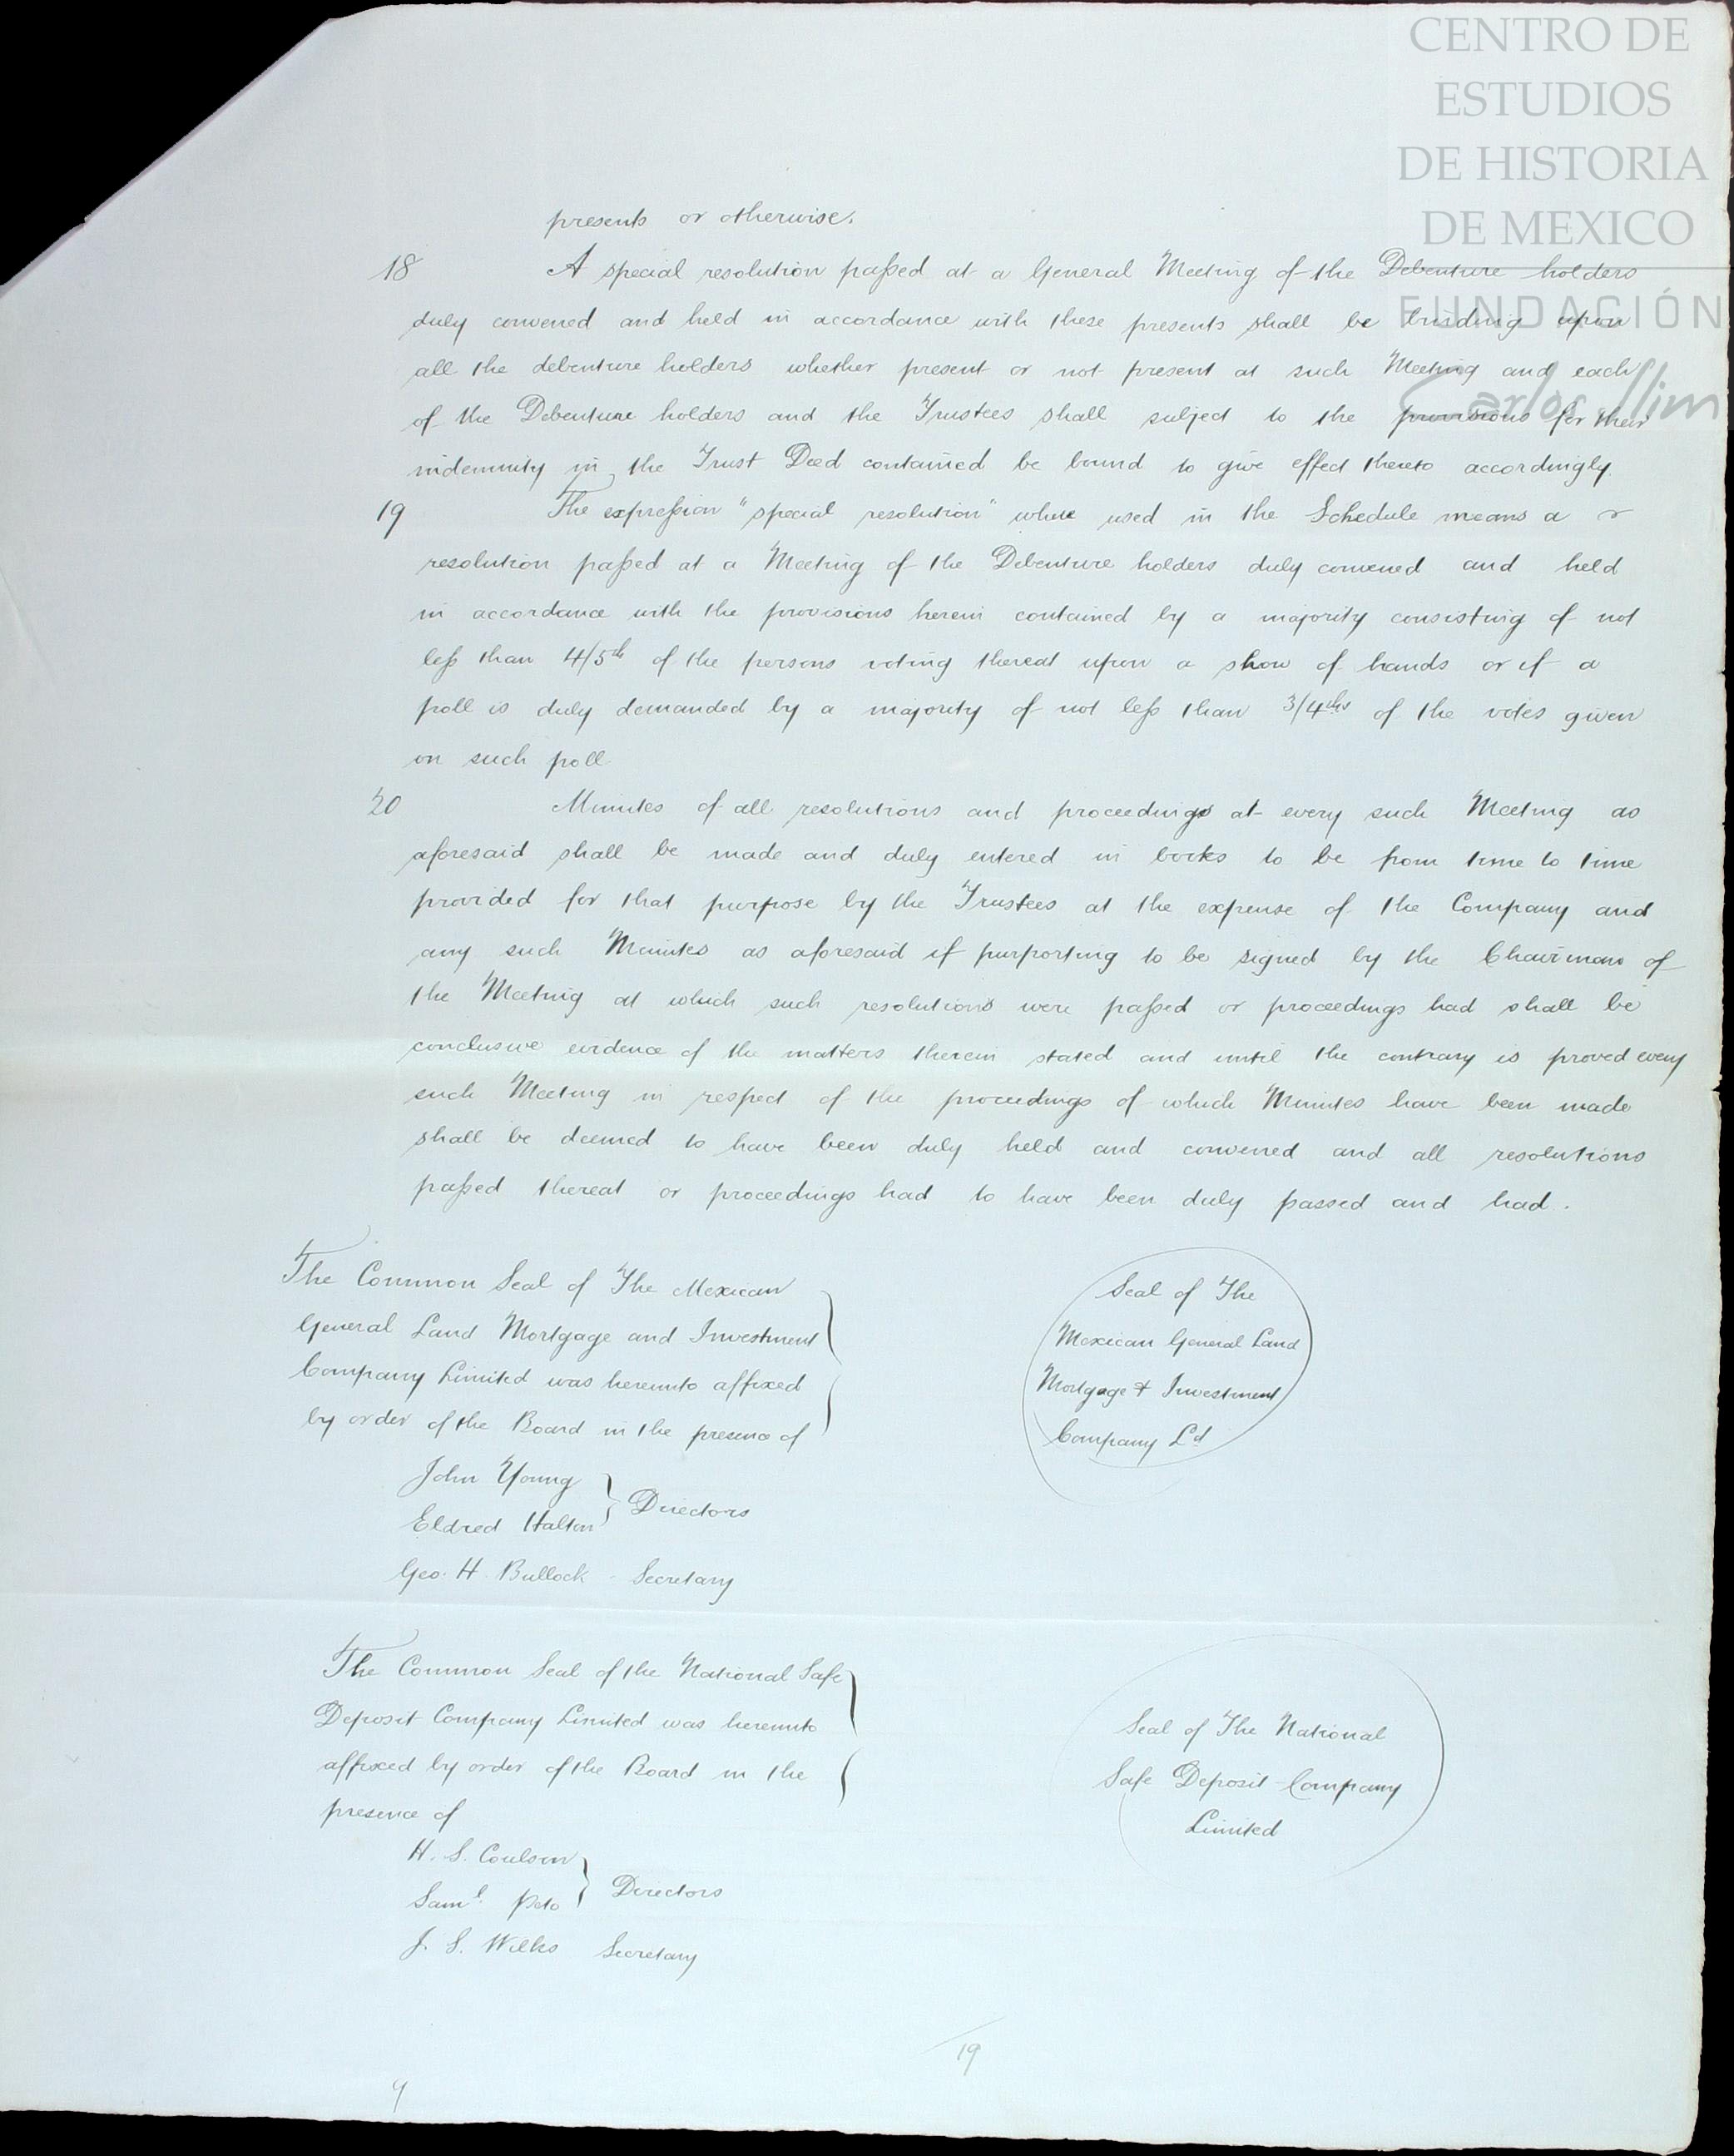 CENTRO DE
ESTUDIOS
DE HISTORIA
DE MEXICO
FUNDACIÓN
Carlos Slim
presents or otherwise.
18 A special resolution paſsed at a General Meeting of the Debenture holders
duly convened and held in accordance with these presents shall be binding upon
all the debenture holders whether present or not present at such Meeting and each
of the Debenture holders and the Trustees shall subject to the provisions for their
indemnity in the Trust Deed contained be bound to give effect thereto accordingly
19 The expreſsion "special resolution" where used in the Schedule means a
resolution paſsed at a Meeting of the Debenture holders duly convened and held
in accordance with the provisions herein contained by a majority consisting of not
leſs than 4/5th of the persons voting thereat upon a show of hands or if a
poll is duly demanded by a majority of not leſs than 3/4ths of the votes given
on such poll
20 Minutes of all resolutions and proceedings at every such Meeting as
aforesaid shall be made and duly entered in books to be from time to time
provided for that purpose by the Trustees at the expense of the Company and
any such Minutes as aforesaid if purporting to be signed by the Chairman of
the Meeting at which such resolutions were paſsed or proceedings had shall be
conclusive evidence of the matters therein stated and until the contrary is proved every
such Meeting in respect of the proceedings of which Minutes have been made
shall be deemed to have been duly held and convened and all resolutions
paſsed thereat or proceedings had to have been duly passed and had.
The Common Seal of The Mexican
General Land Mortgage and Investment
Company Limited was hereunto affixed
by order of the Board in the presence of
Seal of The
Mexican General Land
Mortgage & Investment
Company Ld
John Young
Eldred Halton
Directors
Geo. H. Bullock - Secretary
The Common Seal of the National Safe
Deposit Company Limited was hereunto
affixed by order of the Board in the
presence of
Seal of The National
Safe Deposit Company
Limited
H. S. Coulson
Saml. Peto
Directors
J. S. Wilks Secretary
19